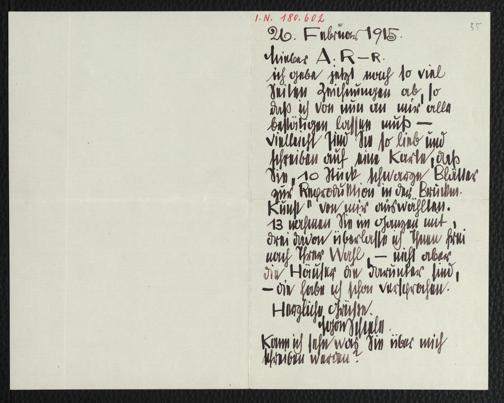 I.N. 180.602
35
26. Februar 1915.
Lieber A. R–R.
ich gebe jetzt nach so viel
Seiten Zeichnungen ab, so
daß ich von nun an mir alle
bestätigen lassen muß —
vielleicht sind Sie so lieb und
schreiben auf eine Karte, daß
Sie „10 Stück schwarze Blätter
zur Reproduktion in der Bruckm.
Kunst" von mir auswählten.
13 nahmen Sie im ganzen mit,
drei davon überlasse ich Ihnen frei
nach Ihrer Wahl, — nicht aber
die Häuser die darunter sind,
– die habe ich schon versprochen.
Herzliche Grüsse.
Egon Schiele.
Kann ich sehn was Sie über mich
schreiben werden?